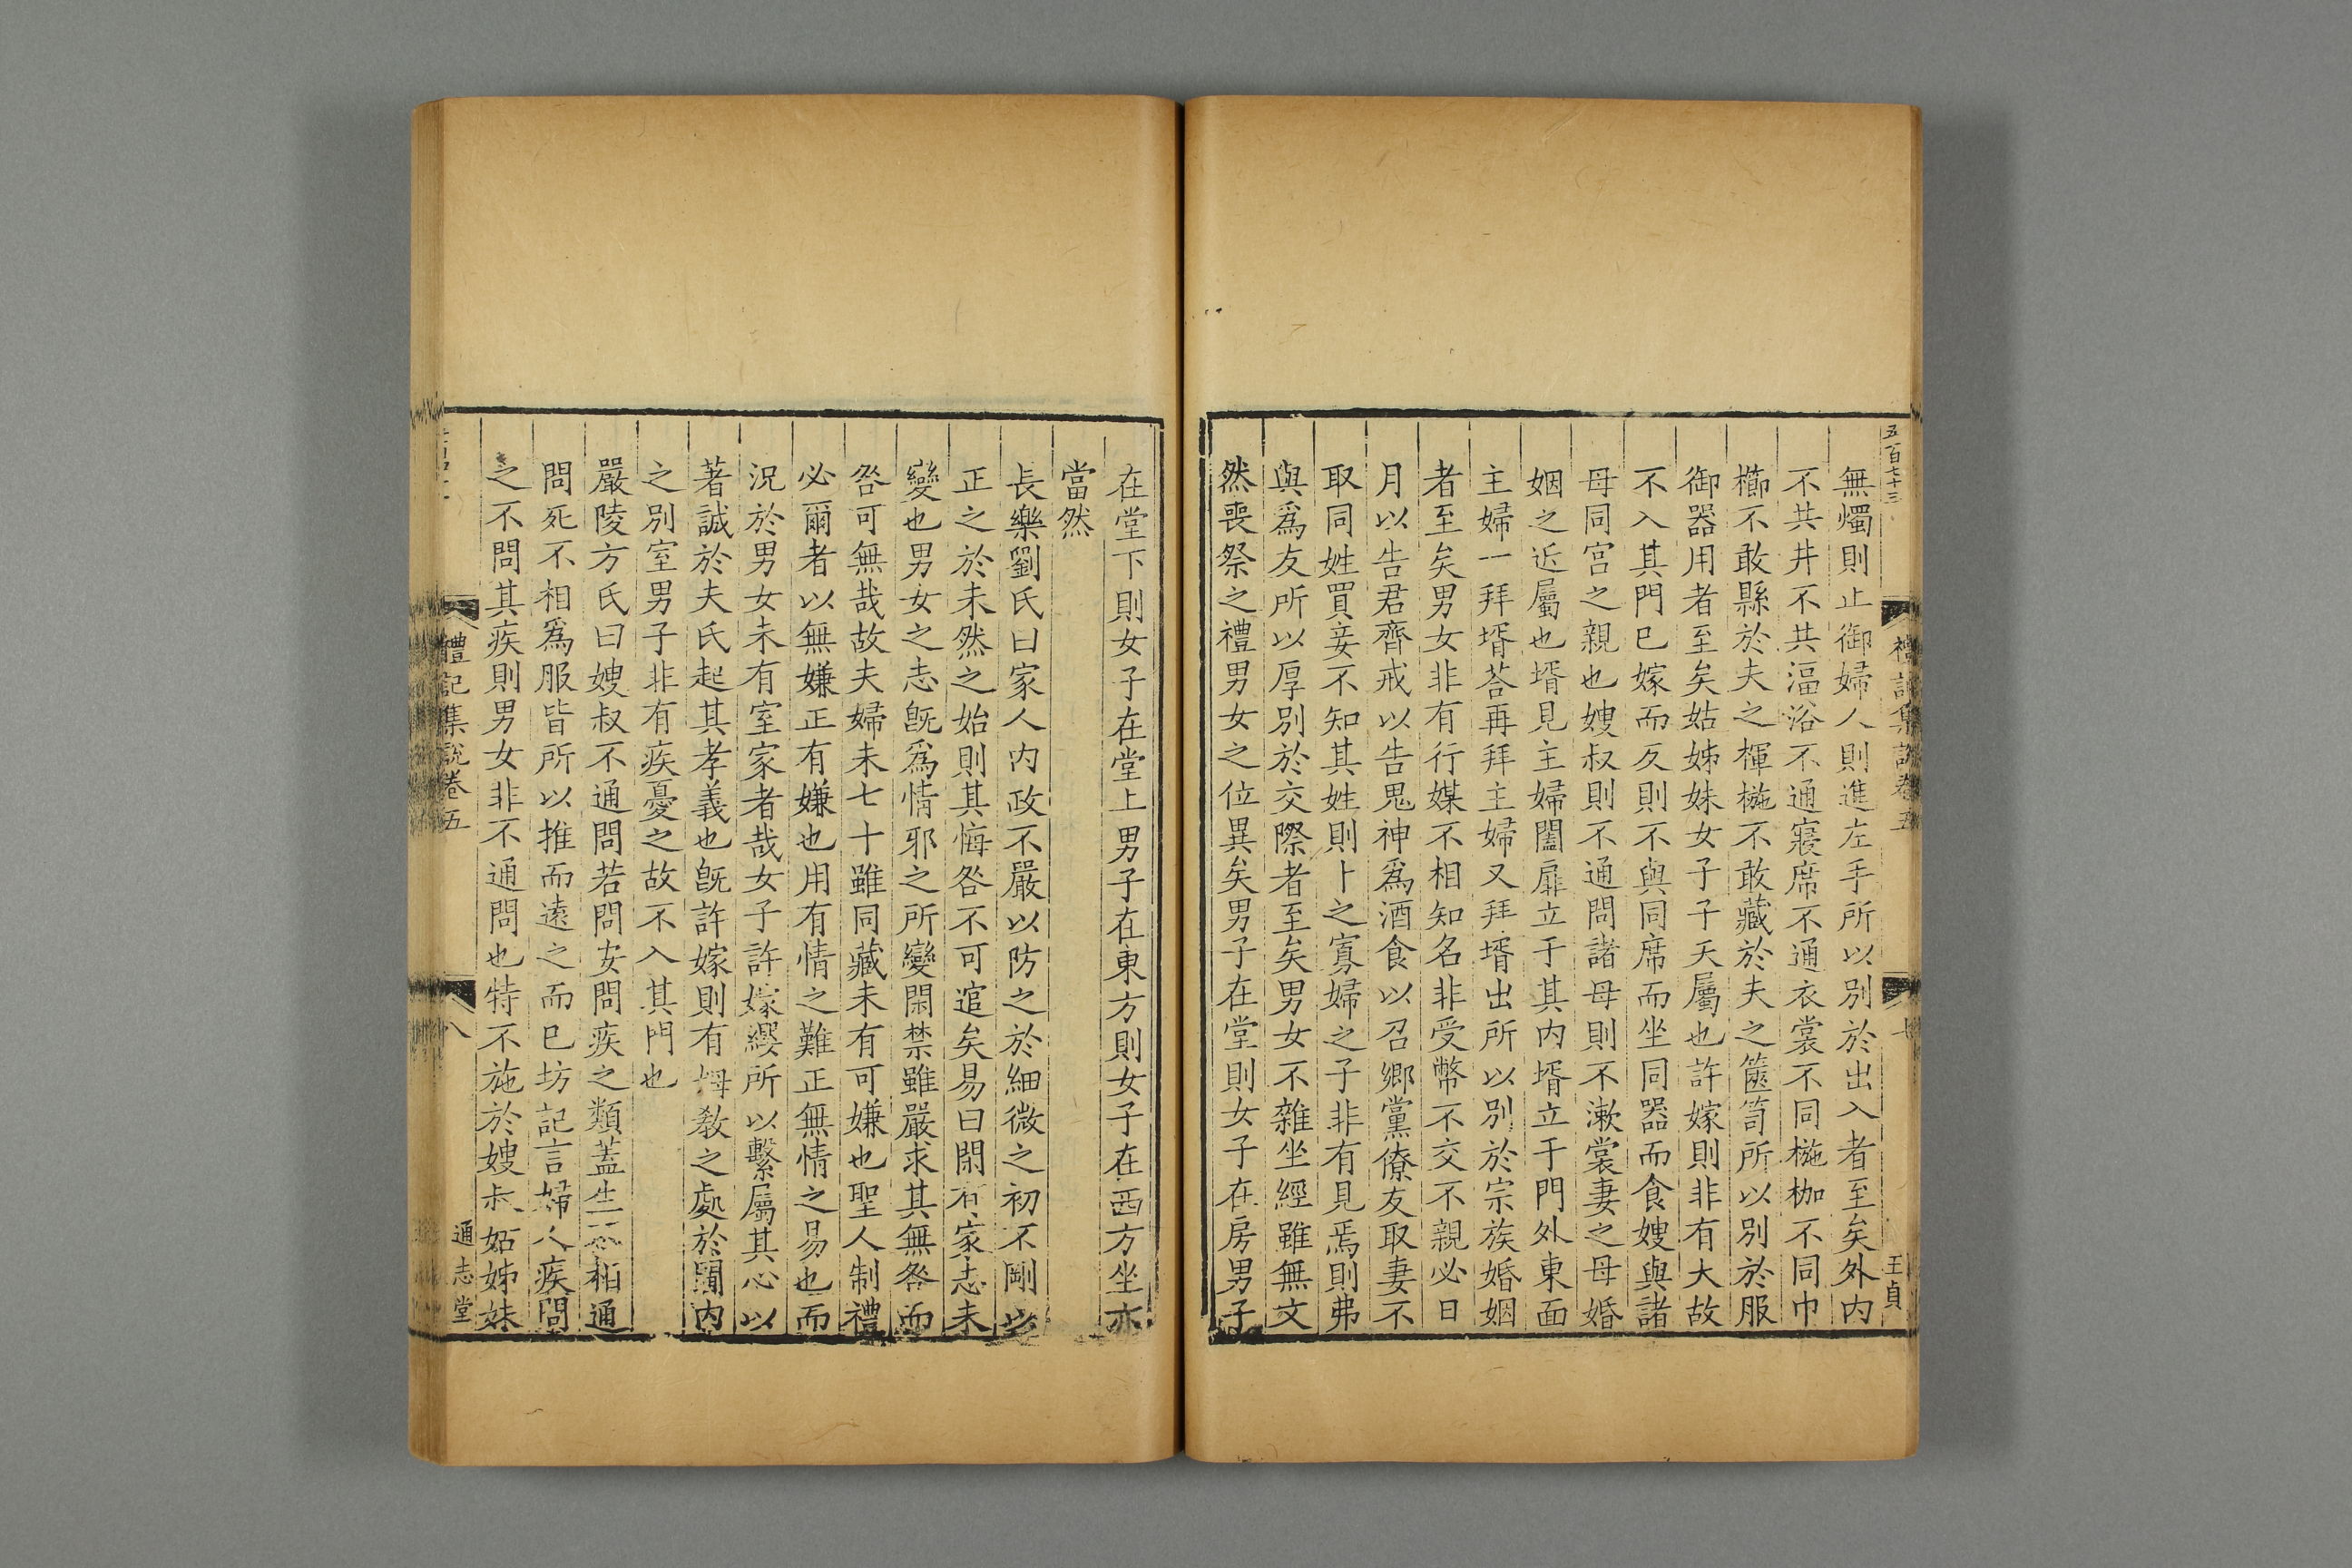 五百七十三
禮記集說卷五
七
王貞
無燭則止御婦人則進左手所以別於出入者至矣外內
不共井不共湢浴不通寢席不通衣裳不同椸枷不同巾
櫛不敢縣於夫之楎椸不敢藏於夫之篋笥所以別於服
御器用者至矣姑姊妹女子子天屬也許嫁則非有大故
不入其門已嫁而反則不與同席而坐同器而食嫂與諸
母同宮之親也嫂叔則不通問諸母則不漱裳妻之母婚
姻之近屬也壻見主婦闔扉立于其內壻立于門外東面
主婦一拜壻荅再拜主婦又拜壻出所以別於宗族婚姻
者至矣男女非有行媒不相知名非受幣不交不親必日
月以告君齊戒以告鬼神爲酒食以召鄉黨僚友取妻不
取同姓買妾不知其姓則卜之寡婦之子非有見焉則弗
與爲友所以厚別於交際者至矣男女不雜坐經雖無文
然喪祭之禮男女之位異矣男子在堂則女子在房男子
在堂下則女子在堂上男子在東方則女子在西方坐亦
當然
長樂劉氏曰家人內政不嚴以防之於細微之初不剛以
正之於未然之始則其悔咎不可逭矣易曰閑有家志未
變也男女之志旣爲情邪之所變閑禁雖嚴求其無咎而
咎可無哉故夫婦未七十雖同藏未有可嫌也聖人制禮
必爾者以無嫌正有嫌也用有情之難正無情之易也而
況於男女未有室家者哉女子許嫁纓所以繫屬其心以
著誠於夫氏起其孝義也旣許嫁則有姆敎之處於閨內
之別室男子非有疾憂之故不入其門也
嚴陵方氏曰嫂叔不通問若問安問疾之類蓋生不相通
問死不相爲服皆所以推而遠之而已坊記言婦人疾問
之不問其疾則男女非不通問也特不施於嫂叔姑姊妹
禮記集說卷五
八
通志堂